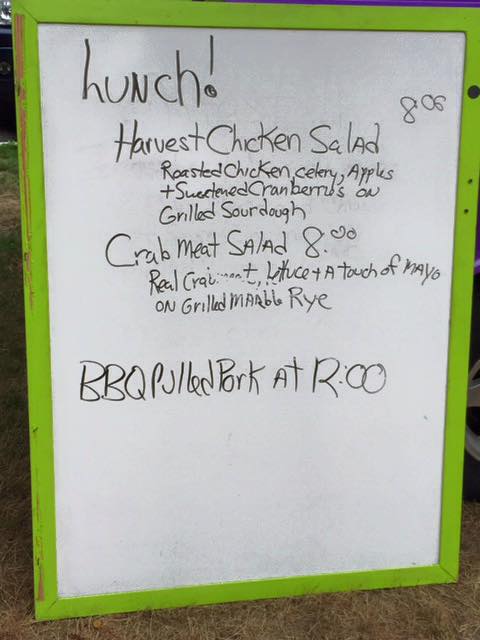 Lunch!
8.00
Harvest Chicken Salad
Roasted Chicken, celery, Apples
+ Sweetened Cranberries on
Grilled Sourdough
Crab Meat Salad 8.00
Real Crabmeat, Lettuce + A touch of MAYO
ON Grilled MARble Rye
BBQ Pulled Pork At 12:00